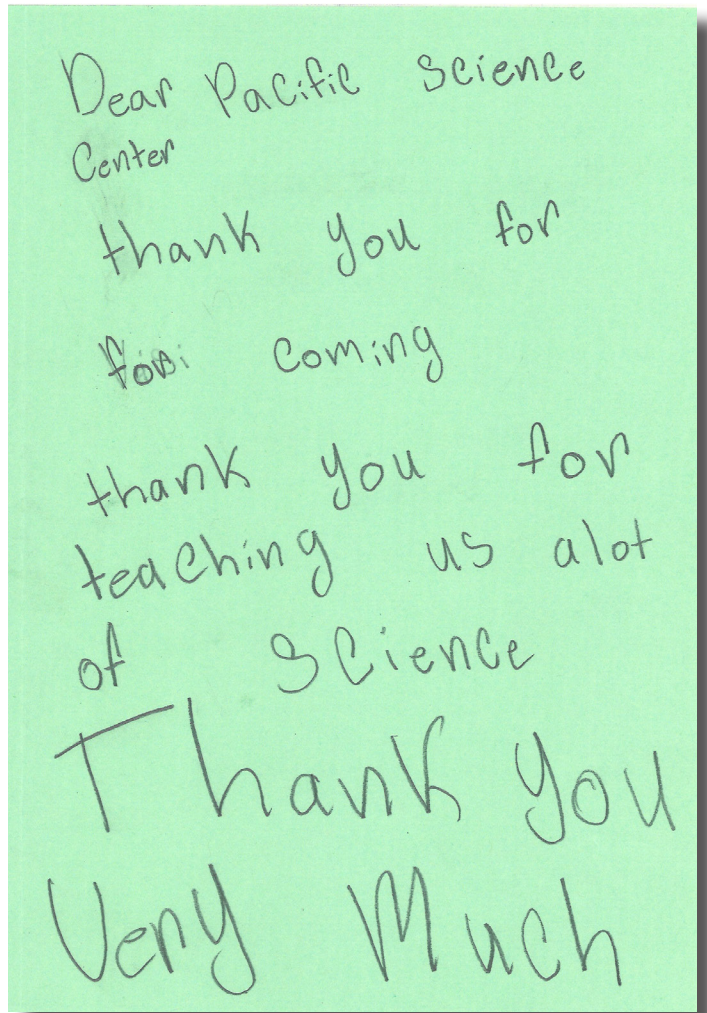 Dear Pacific Science
Center
thank you for
for coming
thank you for
teaching us alot
of Science
Thank you
Very Much